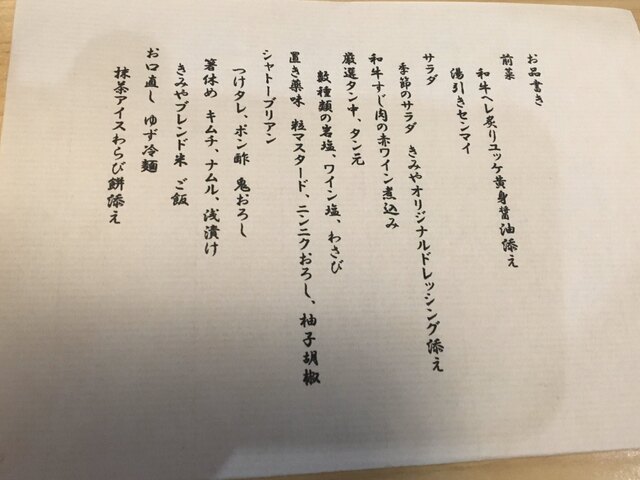 お品書き
前菜
和牛ヘレ炙りユッケ黄身醤油添え
湯引きセンマイ
サラダ
季節のサラダ きみやオリジナルドレッシング添え
和牛すじ肉の赤ワイン煮込み
厳選タン中、タン元
数種類の岩塩、ワイン塩、わさび
置き薬味 粒マスタード、ニンニクおろし、柚子胡椒
シャトーブリアン
つけタレ、ポン酢 鬼おろし
箸休め キムチ、ナムル、浅漬け
きみやブレンド米 ご飯
お口直し ゆず冷麺
抹茶アイスわらび餅添え